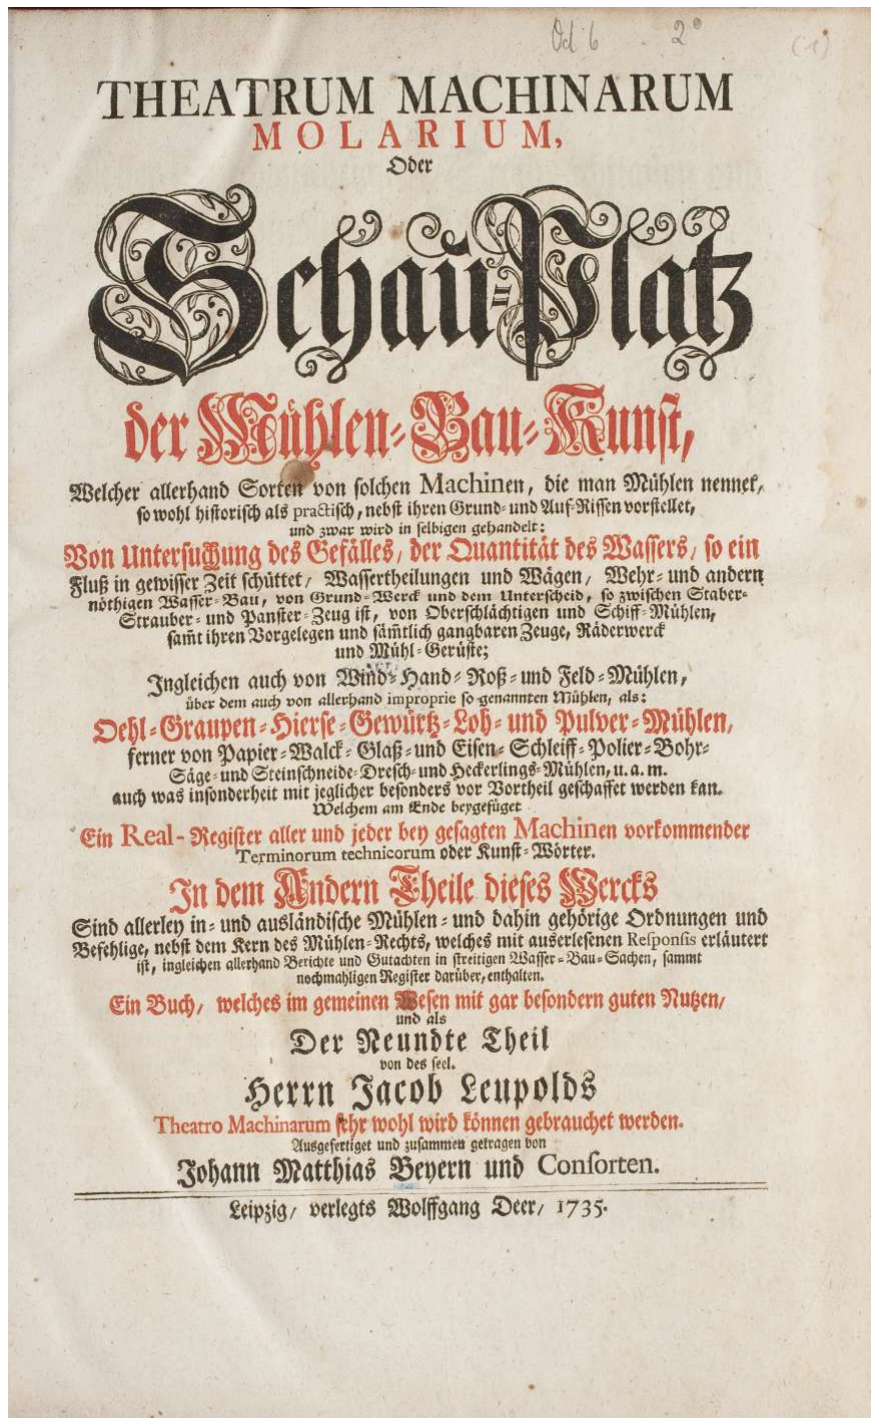 Od 6 2° (1)
THEATRUM MACHINARUM
MOLARIUM,
Oder
Schau-Platz
der Mühlen-Bau-Kunst,
Welcher allerhand Sorten von solchen Machinen, die man Mühlen nennet,
so wohl historisch als practisch, nebst ihren Grund- und Auf-Rissen vorstellet,
und zwar wird in selbigen gehandelt:
Von Untersuchung des Gefälles, der Quantität des Wassers, so ein
Fluß in gewisser Zeit schüttet, Wassertheilungen und Wägen, Wehr- und andern
nöthigen Wasser-Bau, von Grund-Werck und dem Unterscheid, so zwischen Staber-
Strauber- und Panster-Zeug ist, von Oberschlächtigen und Schiff-Mühlen,
sam̃t ihren Vorgelegen und säm̃tlich gangbaren Zeuge, Räderwerck
und Mühl-Gerüste;
Ingleichen auch von Wind-Hand-Roß- und Feld-Mühlen,
über dem auch von allerhand improprie so genannten Mühlen, als:
Oehl-Graupen-Hierse-Gewürtz-Loh- und Pulver-Mühlen,
ferner von Papier-Walck-Glaß- und Eisen-Schleiff-Polier-Bohr-
Säge- und Steinschneide-Dresch- und Heckerlings-Mühlen, u. a. m.
auch was insonderheit mit jeglicher besonders vor Vortheil geschaffet werden kan.
Welchem am Ende beygefüget
Ein Real-Register aller und jeder bey gesagten Machinen vorkommender
Terminorum technicorum oder Kunst-Wörter.
In dem Andern Theile dieses Wercks
Sind allerley in- und ausländische Mühlen- und dahin gehörige Ordnungen und
Befehlige, nebst dem Kern des Mühlen-Rechts, welches mit auserlesenen Responsis erläutert
ist, ingleichen allerhand Berichte und Gutachten in streitigen Wasser-Bau-Sachen, sammt
nochmahligen Register darüber, enthalten.
Ein Buch, welches im gemeinen Wesen mit gar besondern guten Nutzen,
und als
Der Neundte Theil
von des seel.
Herrn Jacob Leupolds
Theatro Machinarum sehr wohl wird können gebrauchet werden.
Ausgefertiget und zusammen getragen von
Johann Matthias Beyern und Consorten.
Leipzig, verlegts Wolffgang Deer, 1735.